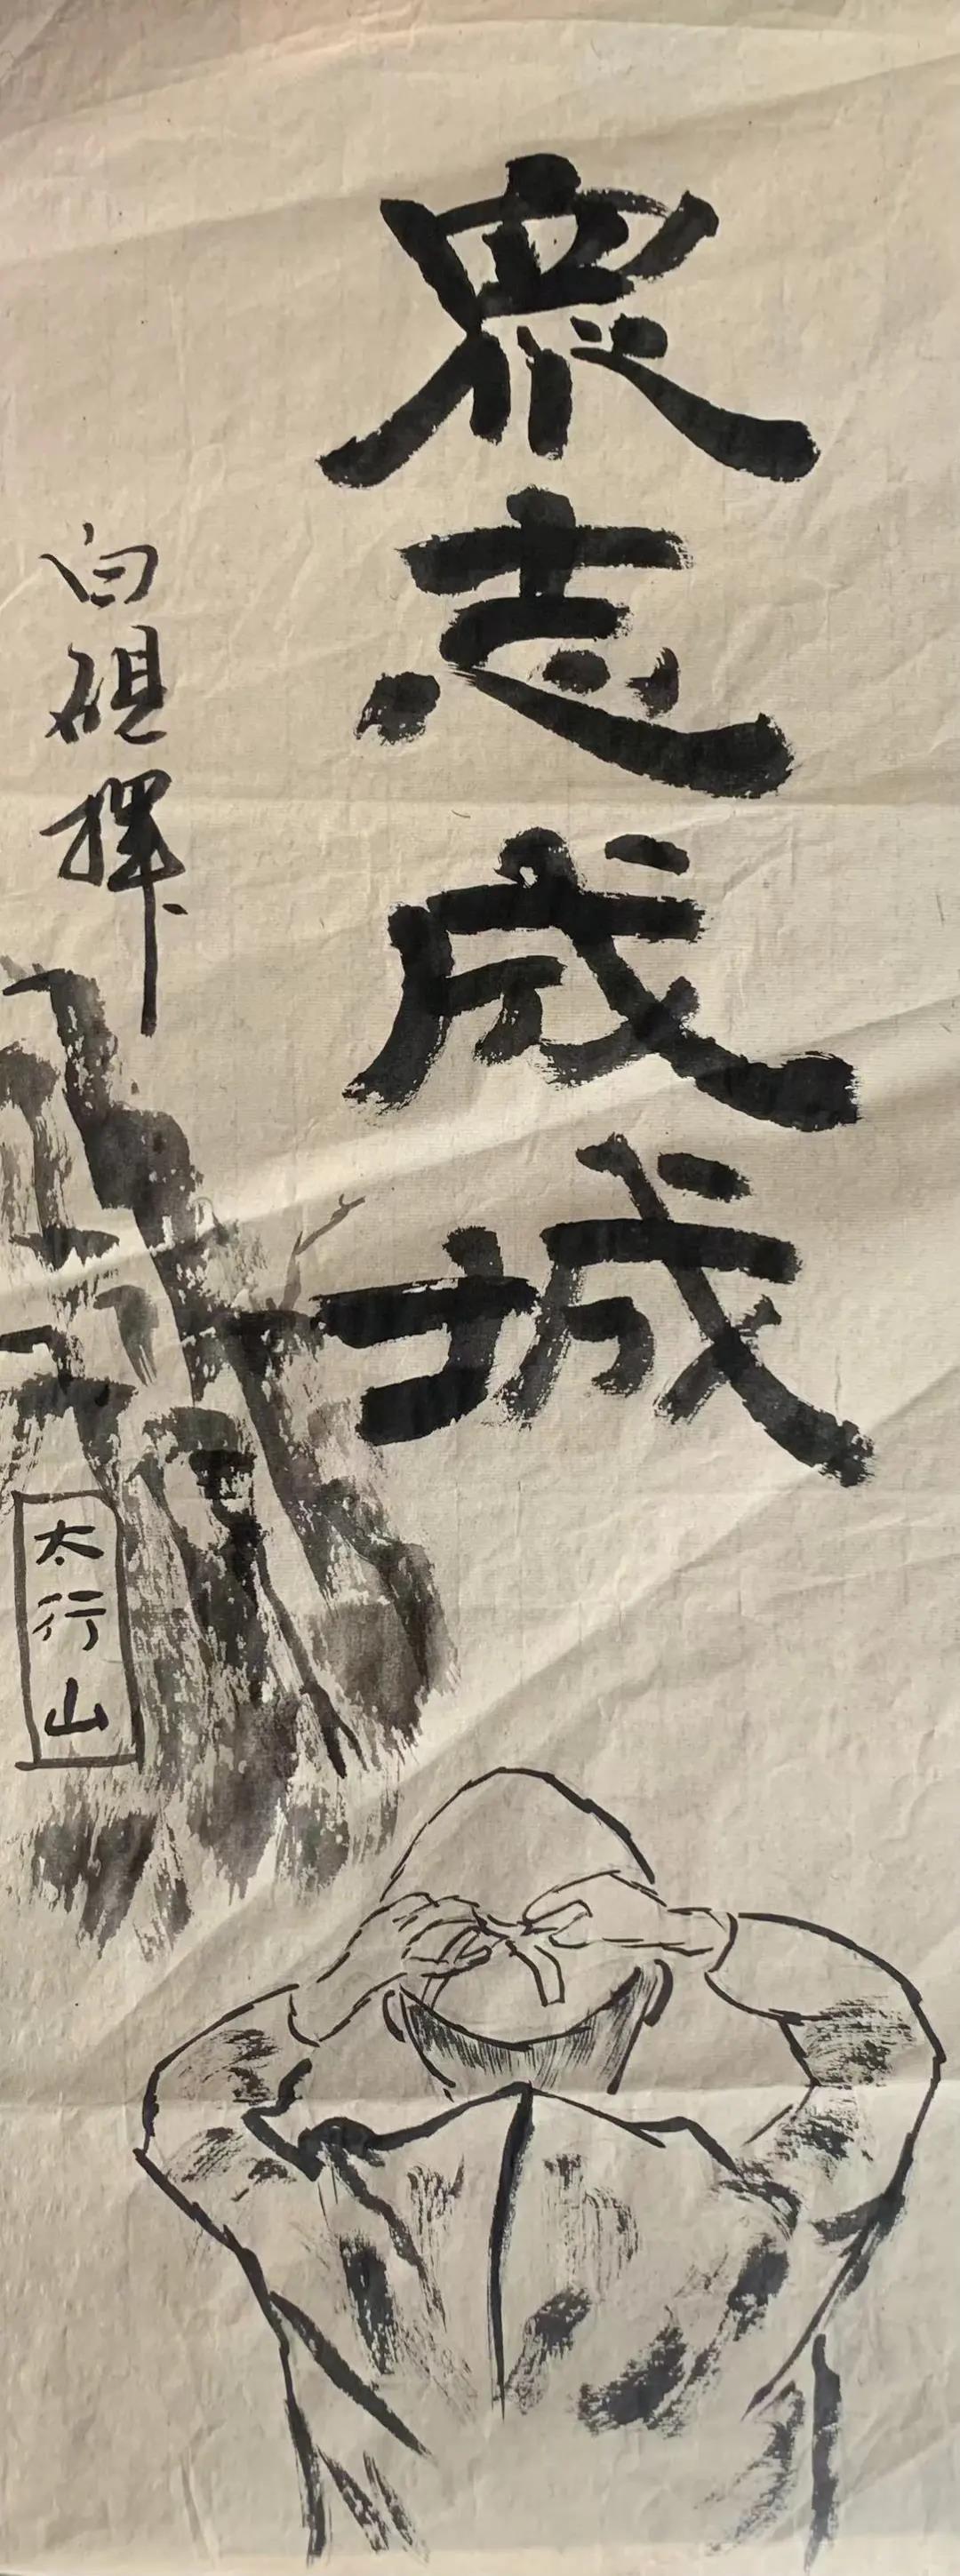 眾志成城
白硯揮
太行山